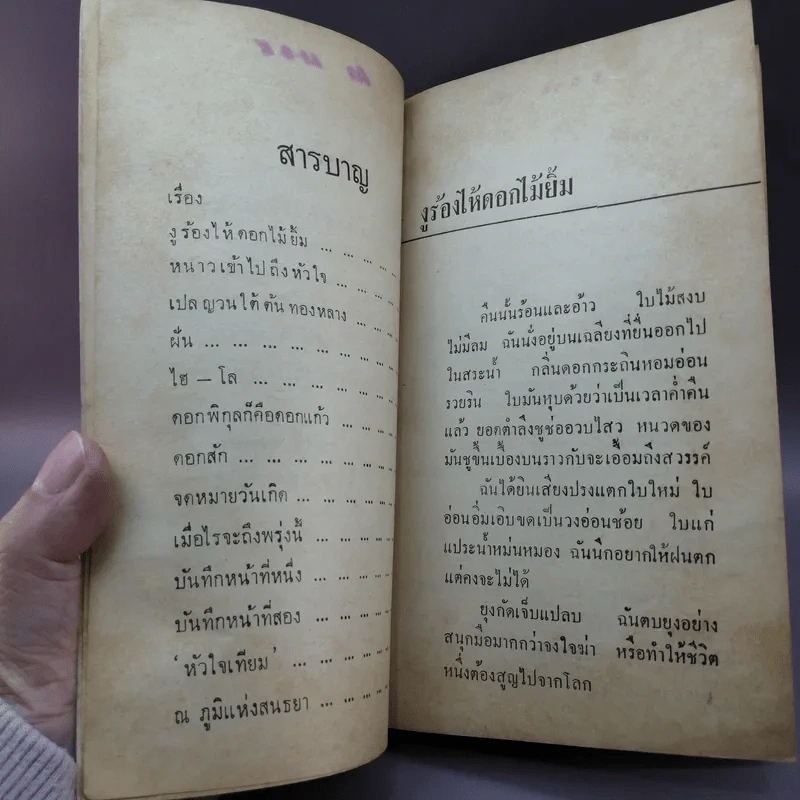 สารบาญ
เรื่อง
งูร้องไห้ดอกไม้ยิ้ม ... ... ... ...
หนาวเข้าไปถึงหัวใจ ... ... ... ...
เปลญวนใต้ต้นทองหลาง ... ... ...
ฝัน ... ... ... ... ... ... ...
ไฮ – โล ... ... ... ... ... ...
ดอกพิกุลก็คือดอกแก้ว ... ... ...
ดอกสัก ... ... ... ... ... ...
จดหมายวันเกิด ... ... ... ... ...
เมื่อไรจะถึงพรุ่งนี้ ... ... ... ...
บันทึกหน้าที่หนึ่ง ... ... ... ...
บันทึกหน้าที่สอง ... ... ... ...
‘หัวใจเทียม’ ... ... ... ... ...
ณ ภูมิแห่งสนธยา ... ... ... ...
งูร้องไห้ดอกไม้ยิ้ม
คืนนั้นร้อนและอ้าว ใบไม้สงบ
ไม่มีลม ฉันนั่งอยู่บนเฉลียงที่ยื่นออกไป
ในสระน้ำ กลิ่นดอกกระถินหอมอ่อน
รวยริน ใบมันหุบด้วยว่าเป็นเวลาค่ำคืน
แล้ว ยอดตำลึงชูช่ออวบไสว หนวดของ
มันชูขึ้นเบื้องบนราวกับจะเอื้อมถึงสวรรค์
ฉันได้ยินเสียงปรงแตกใบใหม่ ใบ
อ่อนอิ่มเอิบขดเป็นวงอ่อนช้อย ใบแก่
แปะน้ำหม่นหมอง ฉันนึกอยากให้ฝนตก
แต่คงจะไม่ได้
ยุงกัดเจ็บแปลบ ฉันตบยุงอย่าง
สนุกมือมากกว่าจงใจฆ่า หรือทำให้ชีวิต
หนึ่งต้องสูญไปจากโลก